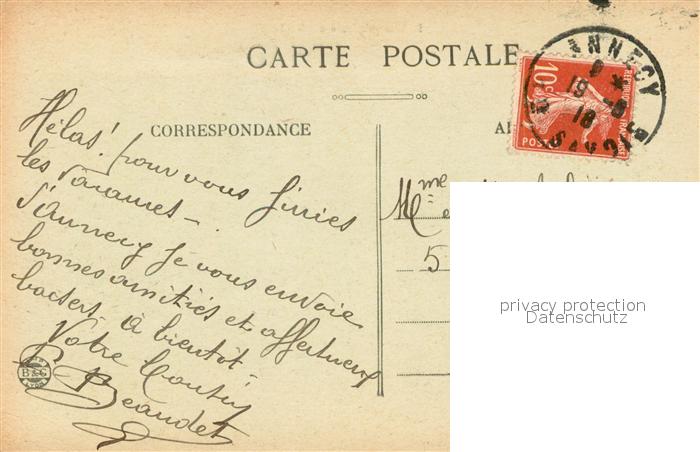 CARTE POSTALE
ANNECY
19 - 8
18
SAVOIE
10c
REPUBLIQUE FRANÇAISE
POSTES
CORRESPONDANCE
Hélas! pour vous finies
les vacances -
d'Annecy je vous envoie
bonnes amitiés et affectueux
baisers, à bientôt -
Votre Cousin
Beaudet
B&G
Mme
5
privacy protection
Datenschutz